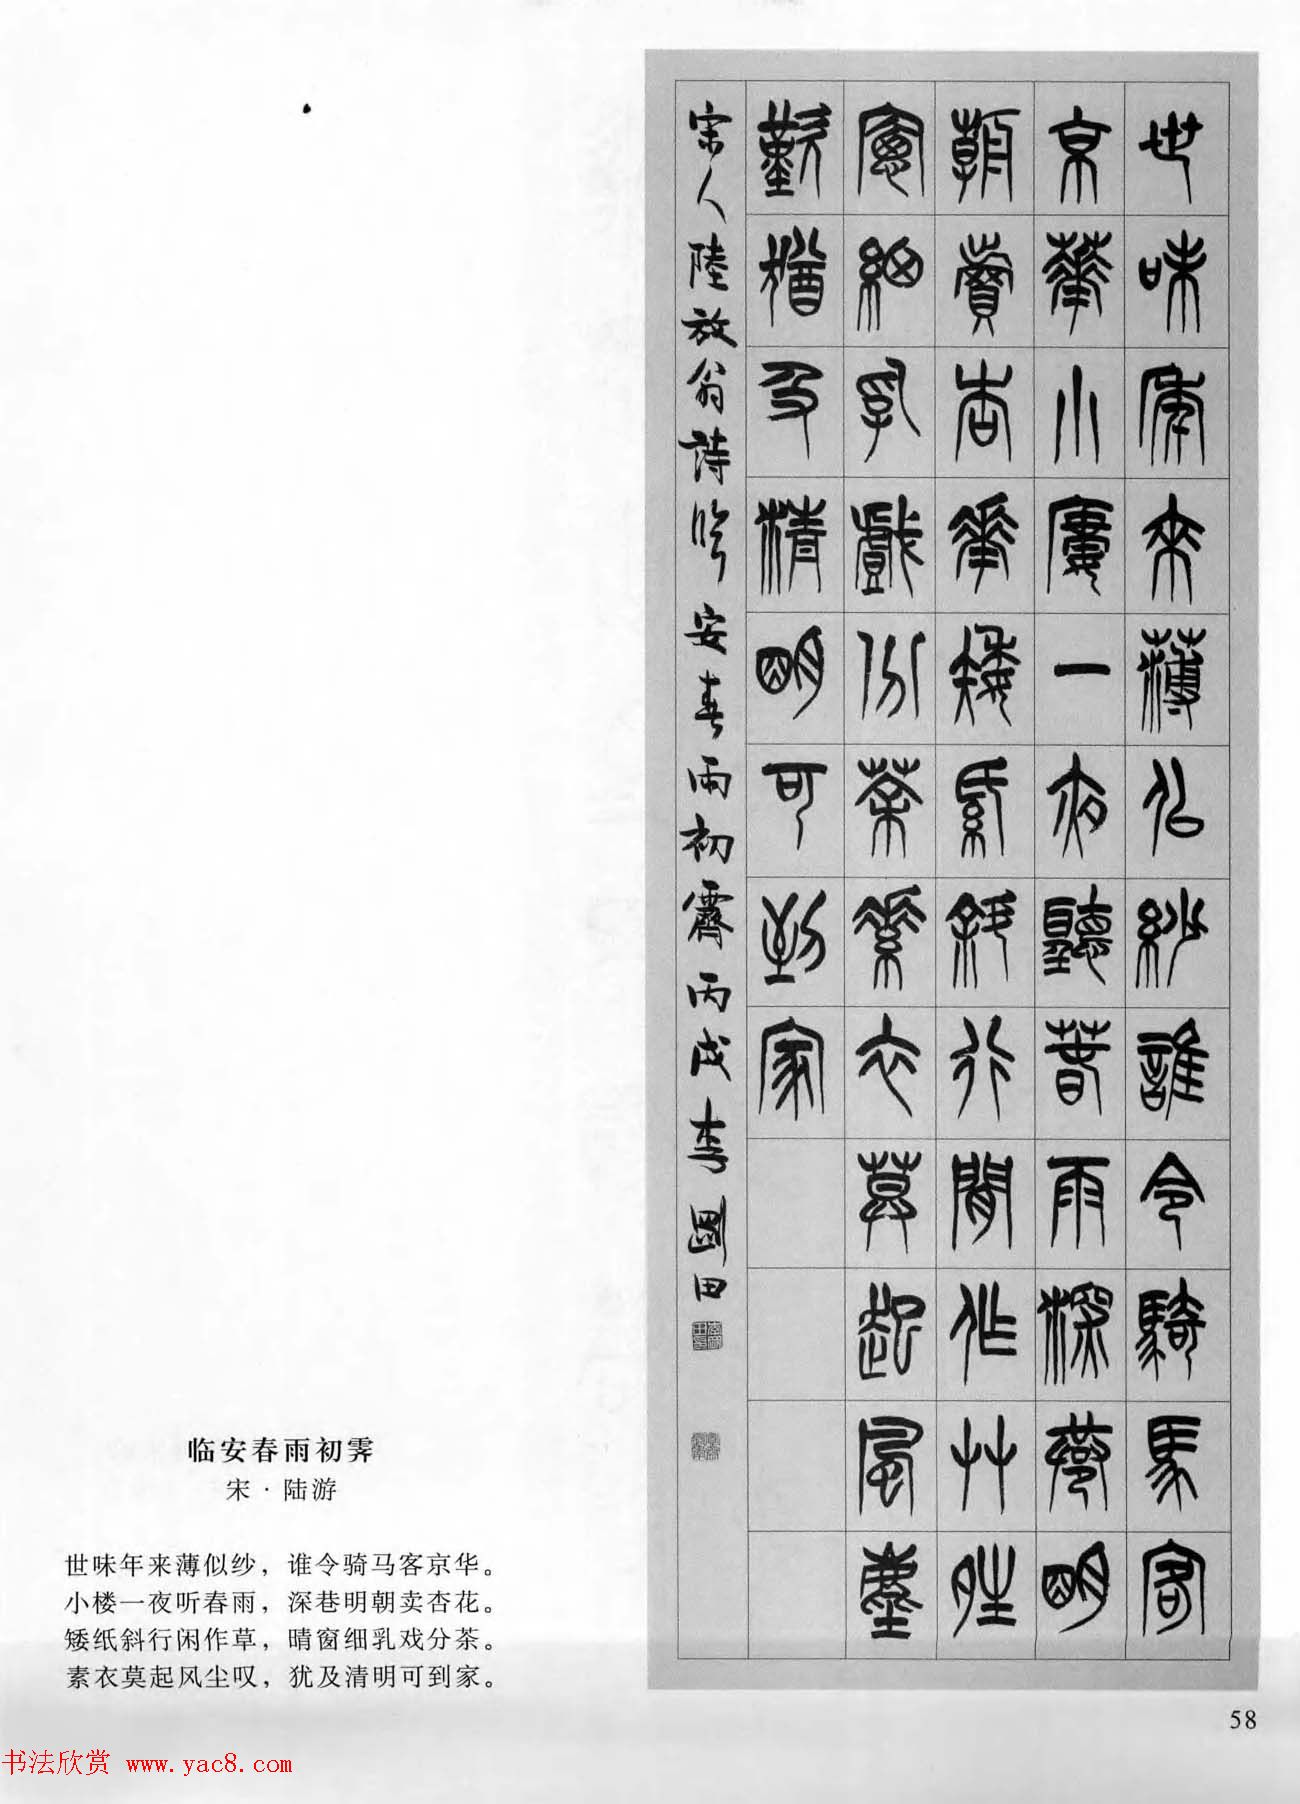 世味年來薄佀紗誰令騎馬客
京華小樓一夜聽春雨深巷明
朝賣杏花矮紙斜行閒作艸晴
窗細乳戲分茶素衣莫起風塵
歎猶及清明可到家
宋人陸放翁詩臨安春雨初霽丙戌李剛田
临安春雨初霁
宋·陆游
世味年来薄似纱，谁令骑马客京华。
小楼一夜听春雨，深巷明朝卖杏花。
矮纸斜行闲作草，晴窗细乳戏分茶。
素衣莫起风尘叹，犹及清明可到家。
58
书法欣赏 www.yac8.com